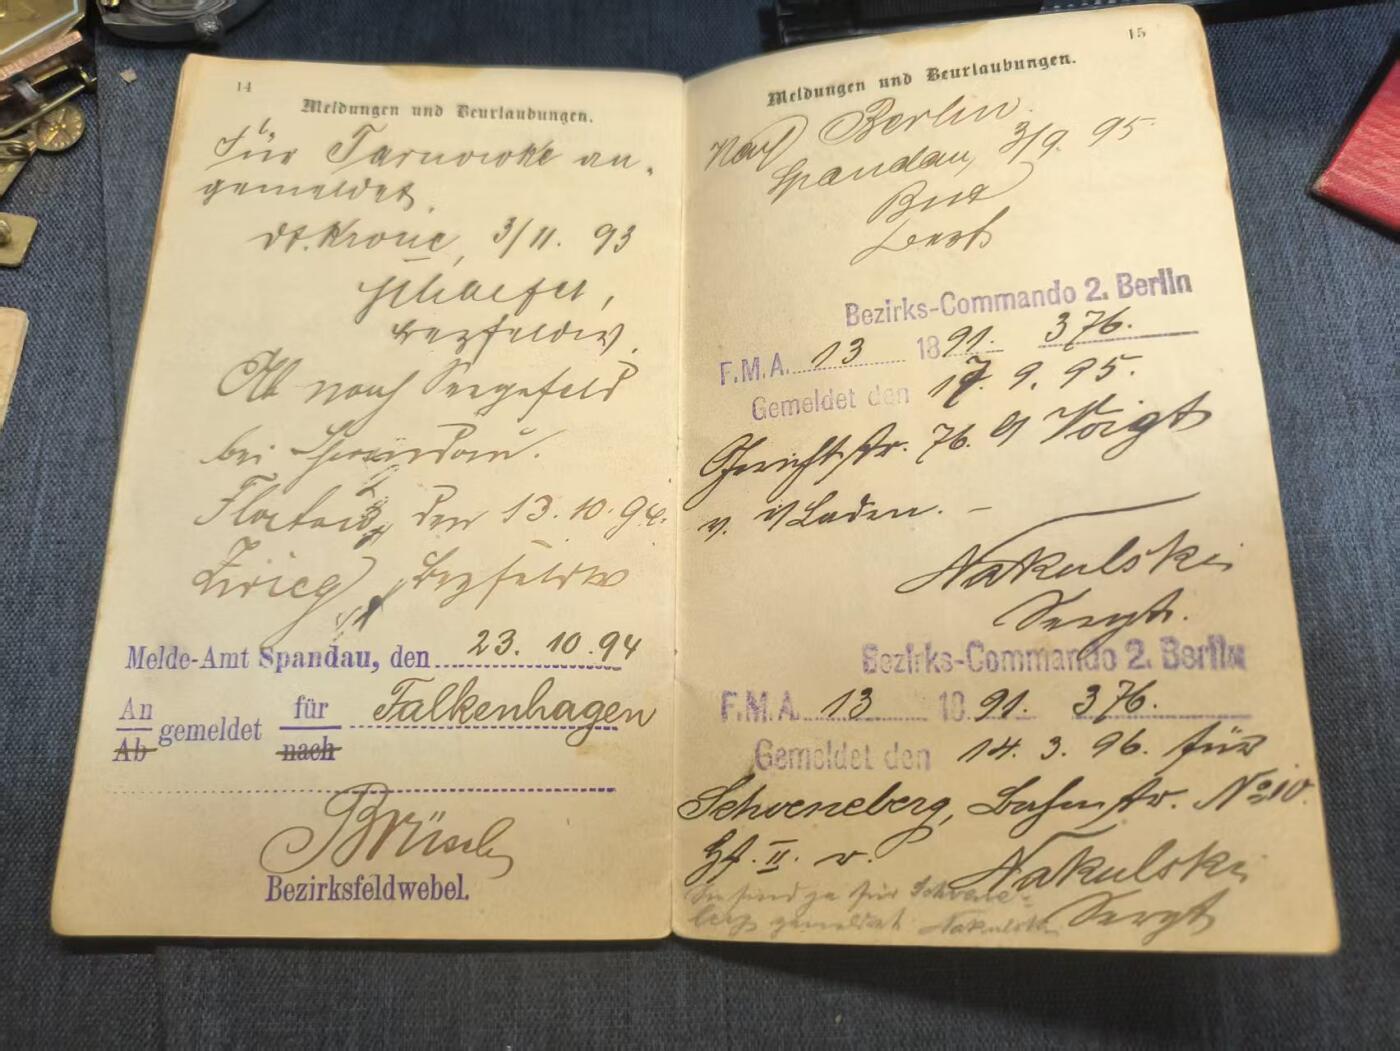 14
Meldungen und Beurlaubungen.
Für Tarnowke an-
gemeldet.
Dt. Krone, 3/11. 93
Schaefer,
Bezfeldw.
Ab nach Seegefeld
bei Spandau.
Flatow, den 13.10.94.
Bezfeldw
Melde-Amt Spandau, den 23. 10.94
An
Ab gemeldet für
nach Falkenhagen
Brüsch
Bezirksfeldwebel.
15
Meldungen und Beurlaubungen.
Nach Berlin
Spandau, 3/9. 95
Bezirks-Commando 2. Berlin
F.M.A. 13 1891. 376.
Gemeldet den 17. 9. 95.
Gerichtstr. 76. Voigt
v. Laden. -
Nakulski
Sergt.
Bezirks-Commando 2. Berlin
F.M.A. 13 1891. 376.
Gemeldet den 14. 3. 96. für
Schoeneberg, Bahnstr. No 10.
Hf. II. v.
Nakulski
Sergt
Sie sind ja für Schoene-
berg gemeldet Nakulski